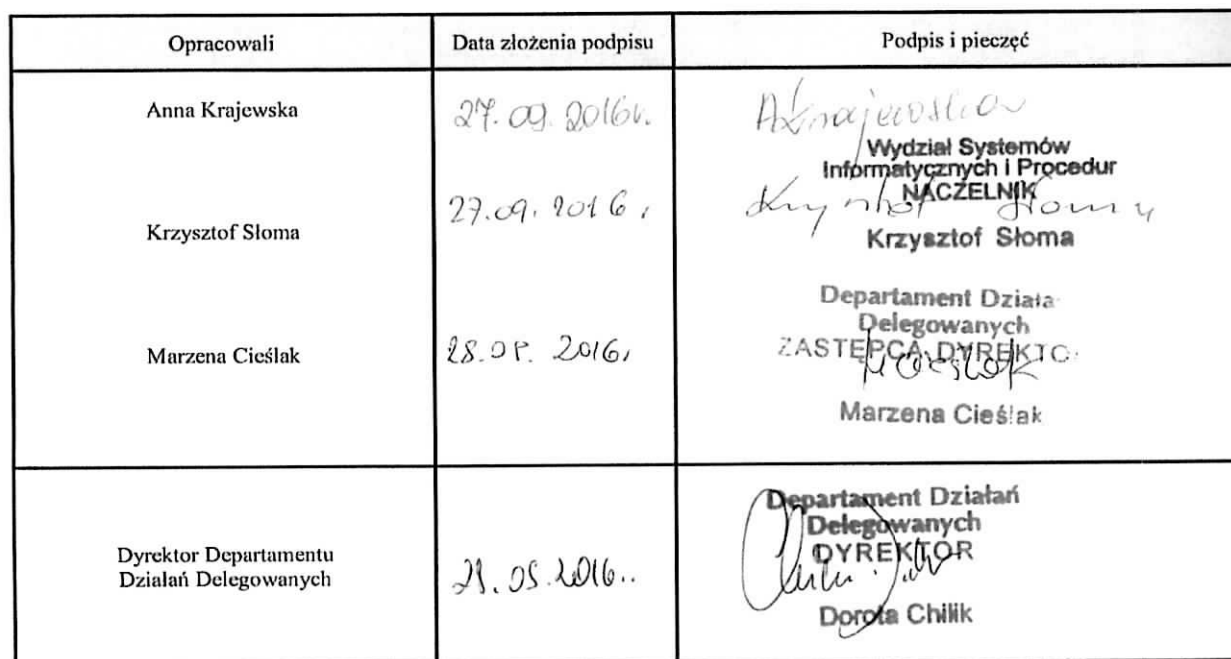 Opracowali
Data złożenia podpisu
Podpis i pieczęć
Anna Krajewska
27.09.2016r.
AKrajewska
Wydział Systemów
Informatycznych i Procedur
NACZELNIK
Krzysztof Słoma
27.09.2016,
Krzysztof Słoma
Krzysztof Słoma
Marzena Cieślak
2016,
Departament Działa
Delegowanych
ZASTĘPCA DYREKTO
MCieślak
Marzena Cieślak
Dyrektor Departamentu
Działań Delegowanych
2016..
Departament Działań
Delegowanych
DYREKTOR
Dorota Chilik